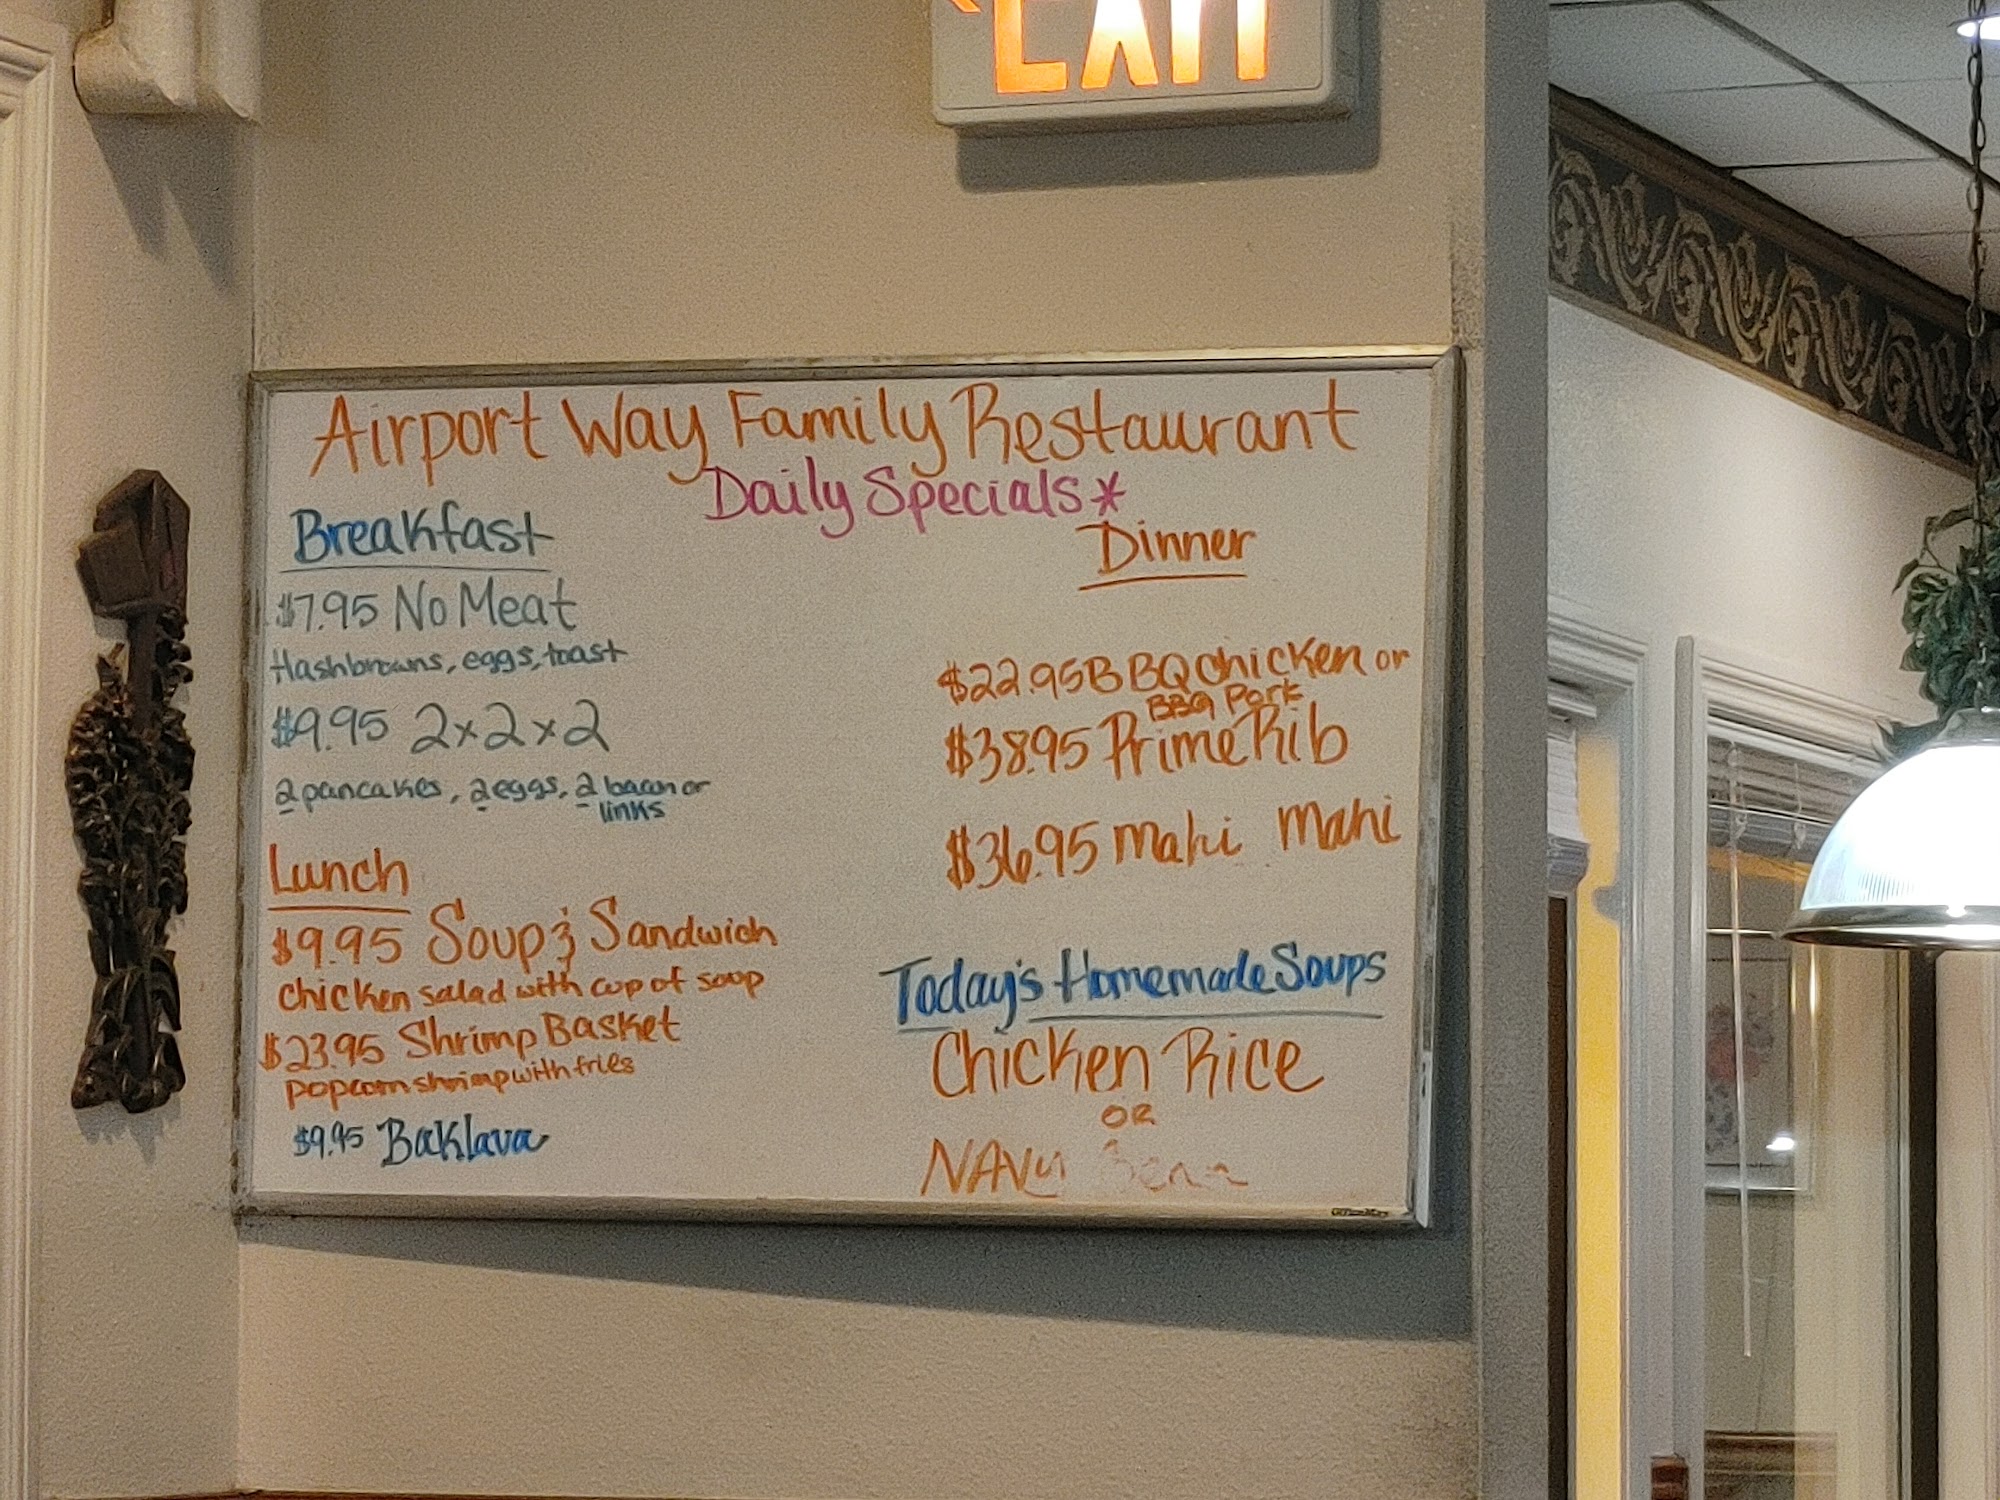 EXIT
Airport Way Family Restaurant
Daily Specials*
Breakfast
$7.95 No Meat
Hashbrowns, eggs, toast
$9.95 2x2x2
2 pancakes, 2 eggs, 2 bacon or
links
Lunch
$9.95 Soup & Sandwich
chicken salad with cup of soup
$23.95 Shrimp Basket
popcorn shrimp with fries
$9.95 Baklava
Dinner
$22.95 BBQ Chicken or
BBQ Pork
$38.95 Prime Rib
$36.95 Mahi Mahi
Today's Homemade Soups
Chicken Rice
OR
NAVy Bean
OfficeMax